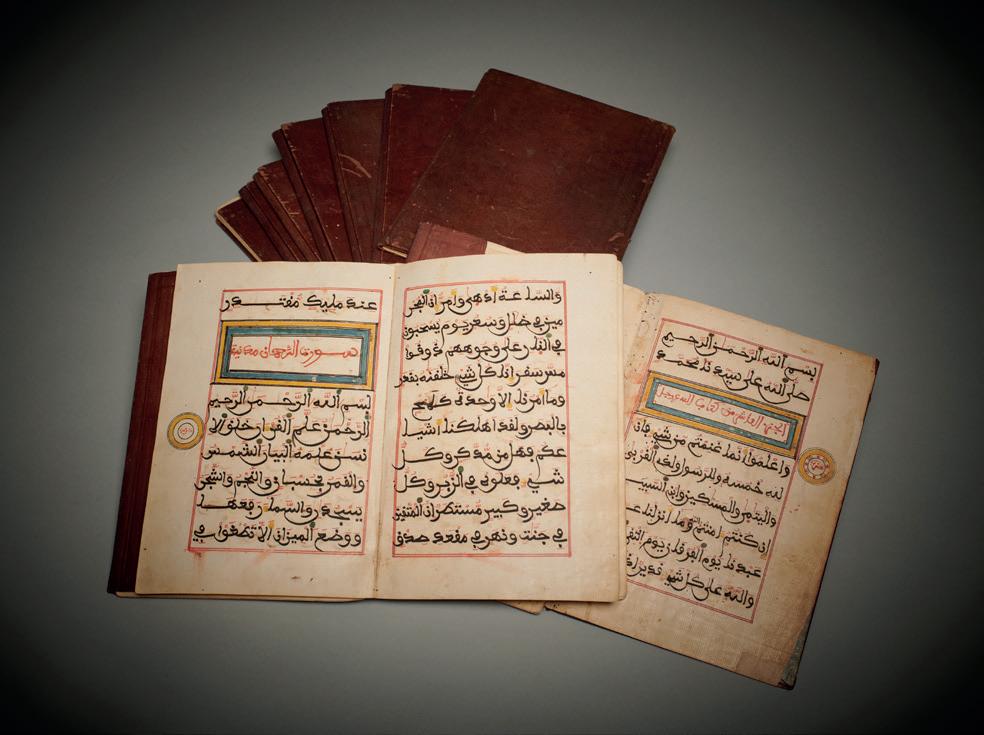 والساعة ادهى وامر ان المجر
مين في ضلل وسعر يوم يسحبون
في النار على وجوههم ذوقوا
مس سقر انا كل شيء خلقنه بقدر
وما امرنا الا وحدة كلمح
بالبصر ولقد اهلكنا اشيا
عكم فهل من مدكر وكل
شيء فعلوه في الزبر وكل
صغير وكبير مستطر ان المتقين
في جنت ونهر في مقعد صدق
عند مليك مقتدر
سورة الرحمن مدنية
بسم الله الرحمن الرحيم
الرحمن علم القران خلق الا
نسن علمه البيان الشمس
والقمر بحسبان والنجم والشجر
يسجدن والسماء رفعها
ووضع الميزان الا تطغوا في
بسم الله الرحمن الرحيم
صلى الله على سيدنا محمد
الجزء العاشر من كتاب الله عز وجل
واعلموا انما غنمتم من شيء فان
لله خمسه وللرسول ولذي القربى
واليتمى والمسكين وابن السبيل
ان كنتم امنتم بالله وما انزلنا على
عبدنا يوم الفرقان يوم التقى
والله على كل شيء قدير